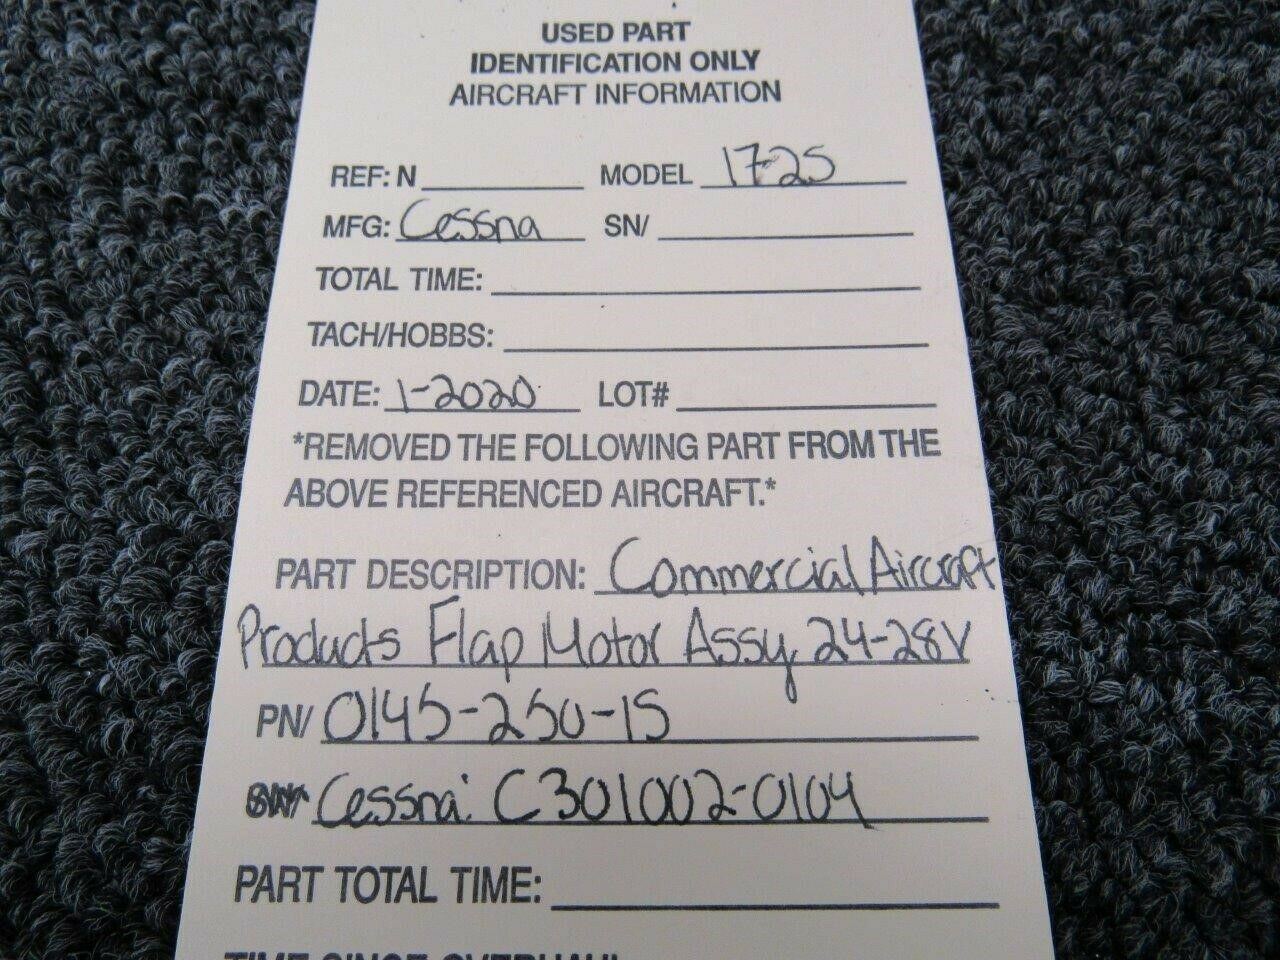 USED PART
IDENTIFICATION ONLY
AIRCRAFT INFORMATION
REF: N MODEL 172S
MFG: Cessna SN/
TOTAL TIME:
TACH/HOBBS:
DATE: 1-2020 LOT#
*REMOVED THE FOLLOWING PART FROM THE
ABOVE REFERENCED AIRCRAFT.*
PART DESCRIPTION: Commercial Aircraft
Products Flap Motor Assy, 24-28V
PN/ 0145-250-15
Cessna: C301002-0104
PART TOTAL TIME:
TIME SINCE OVERHAUL